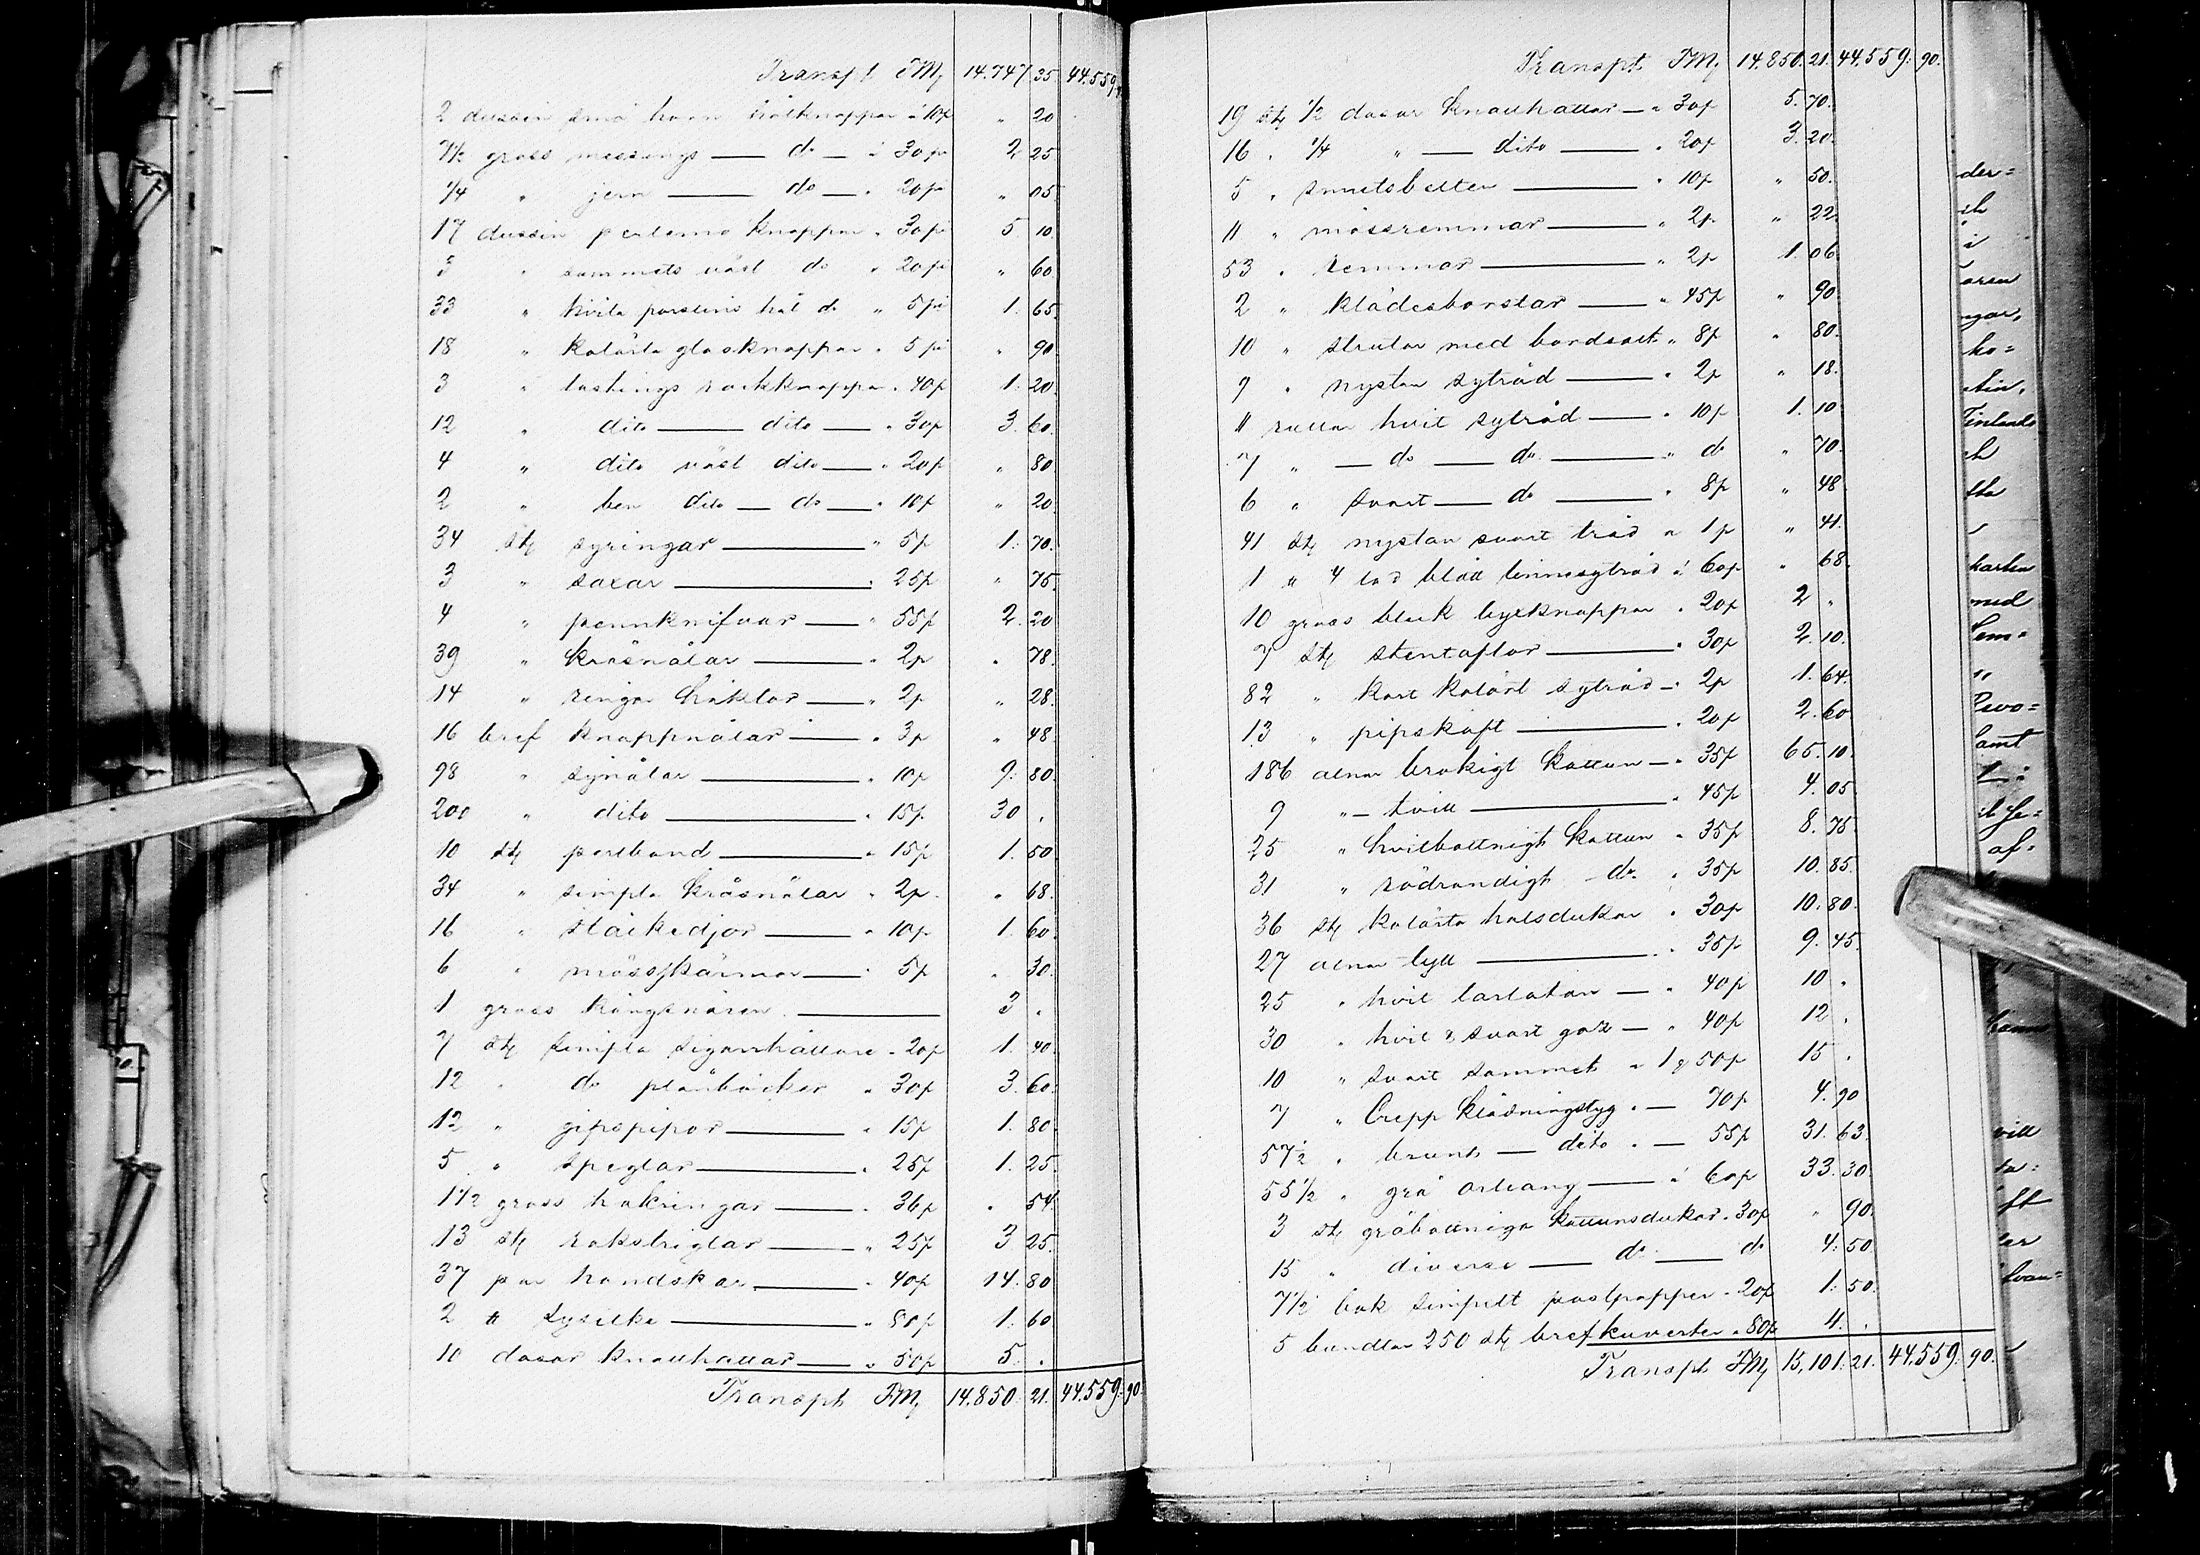 Transpt FMk 14.747 35 44.559
2 dussin små horn hålknappar á 10p " 20
7½ gross messings — do — á 30 pi 2 25
¼ " jern — do — " 20 pi " 05
17 dussin perlemo knappar " 30 pi 5. 10.
3 " sammets väst do " 20 pi " 60
33 " hvita porslins hål do " 5 pi 1. 65.
18 " kulörta glasknappar " 5 pi " 90.
3 " lastings rockknappar " 40p 1. 20.
12 " dito — dito — " 30p 3. 60.
4 " dito väst dito — " 20p " 80
2 " ben dito — do — " 10p " 20
34 stk syringar — " 5p 1. 70.
3 " saxar — " 25p " 75.
4 " pennknifvar — " 55p 2. 20
39 " kråsnålar — " 2p " 78.
14 " ringa häktor — " 2p " 28.
16 bref knappnålar — " 3p " 48.
98 " synålar — " 10p 9. 80.
200 " dito — " 15p 30 "
10 stk perlband — " 15p 1. 50.
34 " simpla kråsnålar " 2p " 68.
16 " stålkedjor — " 10p 1. 60.
6 " mösskärmar — " 5p " 30.
1 gross kängsnören — 3 "
7 stk simpla sigarrhållare " 20p 1. 40.
12 " do plånböcker " 30p 3. 60.
12 " gipspipor — " 15p 1. 80.
5 " speglar — " 25p 1. 25.
1½ gross hakringar — " 36p " 54.
13 stk rakstriglar — " 25p 3 25.
37 par handskar — " 40p 14. 80
2 ℔ sysilke — " 80p 1. 60
10 dosor knallhattar — " 50p 5. "
Transpt FMk 14.850. 21. 44.559. 90
Transpt FMk 14.850. 21. 44.559. 90.
19 stk ½ dosor knallhattar — " 30p 5. 70.
16 " ¼ " — dito — " 20p 3. 20.
5 " — " 10p " 50.
11 " mössremmar — " 2p " 22.
53 " remmar — " 2p 1. 06.
2 " klädesborstar — " 45p " 90
10 " strutar med bordsalt " 8p " 80.
9 " nystan sytråd — " 2p " 18.
11 rullar hvit sytråd — " 10p 1. 10
7 " — do — do — " do " 70.
6 " svart — do — " 8p " 48
41 stk nystan svart tråd " 1p " 41.
1 ℔ 4 lod blått linnesytråd á 60p " 68.
10 gross bleck byxknappar " 20p 2 "
7 stk stentaflor — " 30p 2. 10.
82 " kort kulört sytråd — " 2p 1. 64.
13 " pipskaft — " 20p 2. 60
186 alnar brokigt kattun — " 35p 65. 10.
9 " — tvill — " 45p 4. 05
25 " hvitbottnigt kattun " 35p 8. 75
31 " rödrandigt do " 35p 10. 85.
36 stk kulörta halsdukar " 30p 10. 80.
27 alnar tyll — " 35p 9. 45.
25 " hvit tarlatan — " 40p 10 "
30 " hvit & svart gaz — " 40p 12 "
10 " svart sammet " 1 50p 15 "
7 " Crepp klädningstyg " — 70p 4. 90
57½ " brunt — dito " — 55p 31. 63.
55½ " grå orleang — á 60p 33. 30.
3 stk gråbottniga kattunsdukar " 30p " 90.
15 " diverse — do — do 4. 50
7½ bok simpelt postpapper " 20p 1. 50.
5 bundtar 250 stk brefkuverter " 80p 4. "
Transpt FMk 15,101. 21. 44.559. 90.